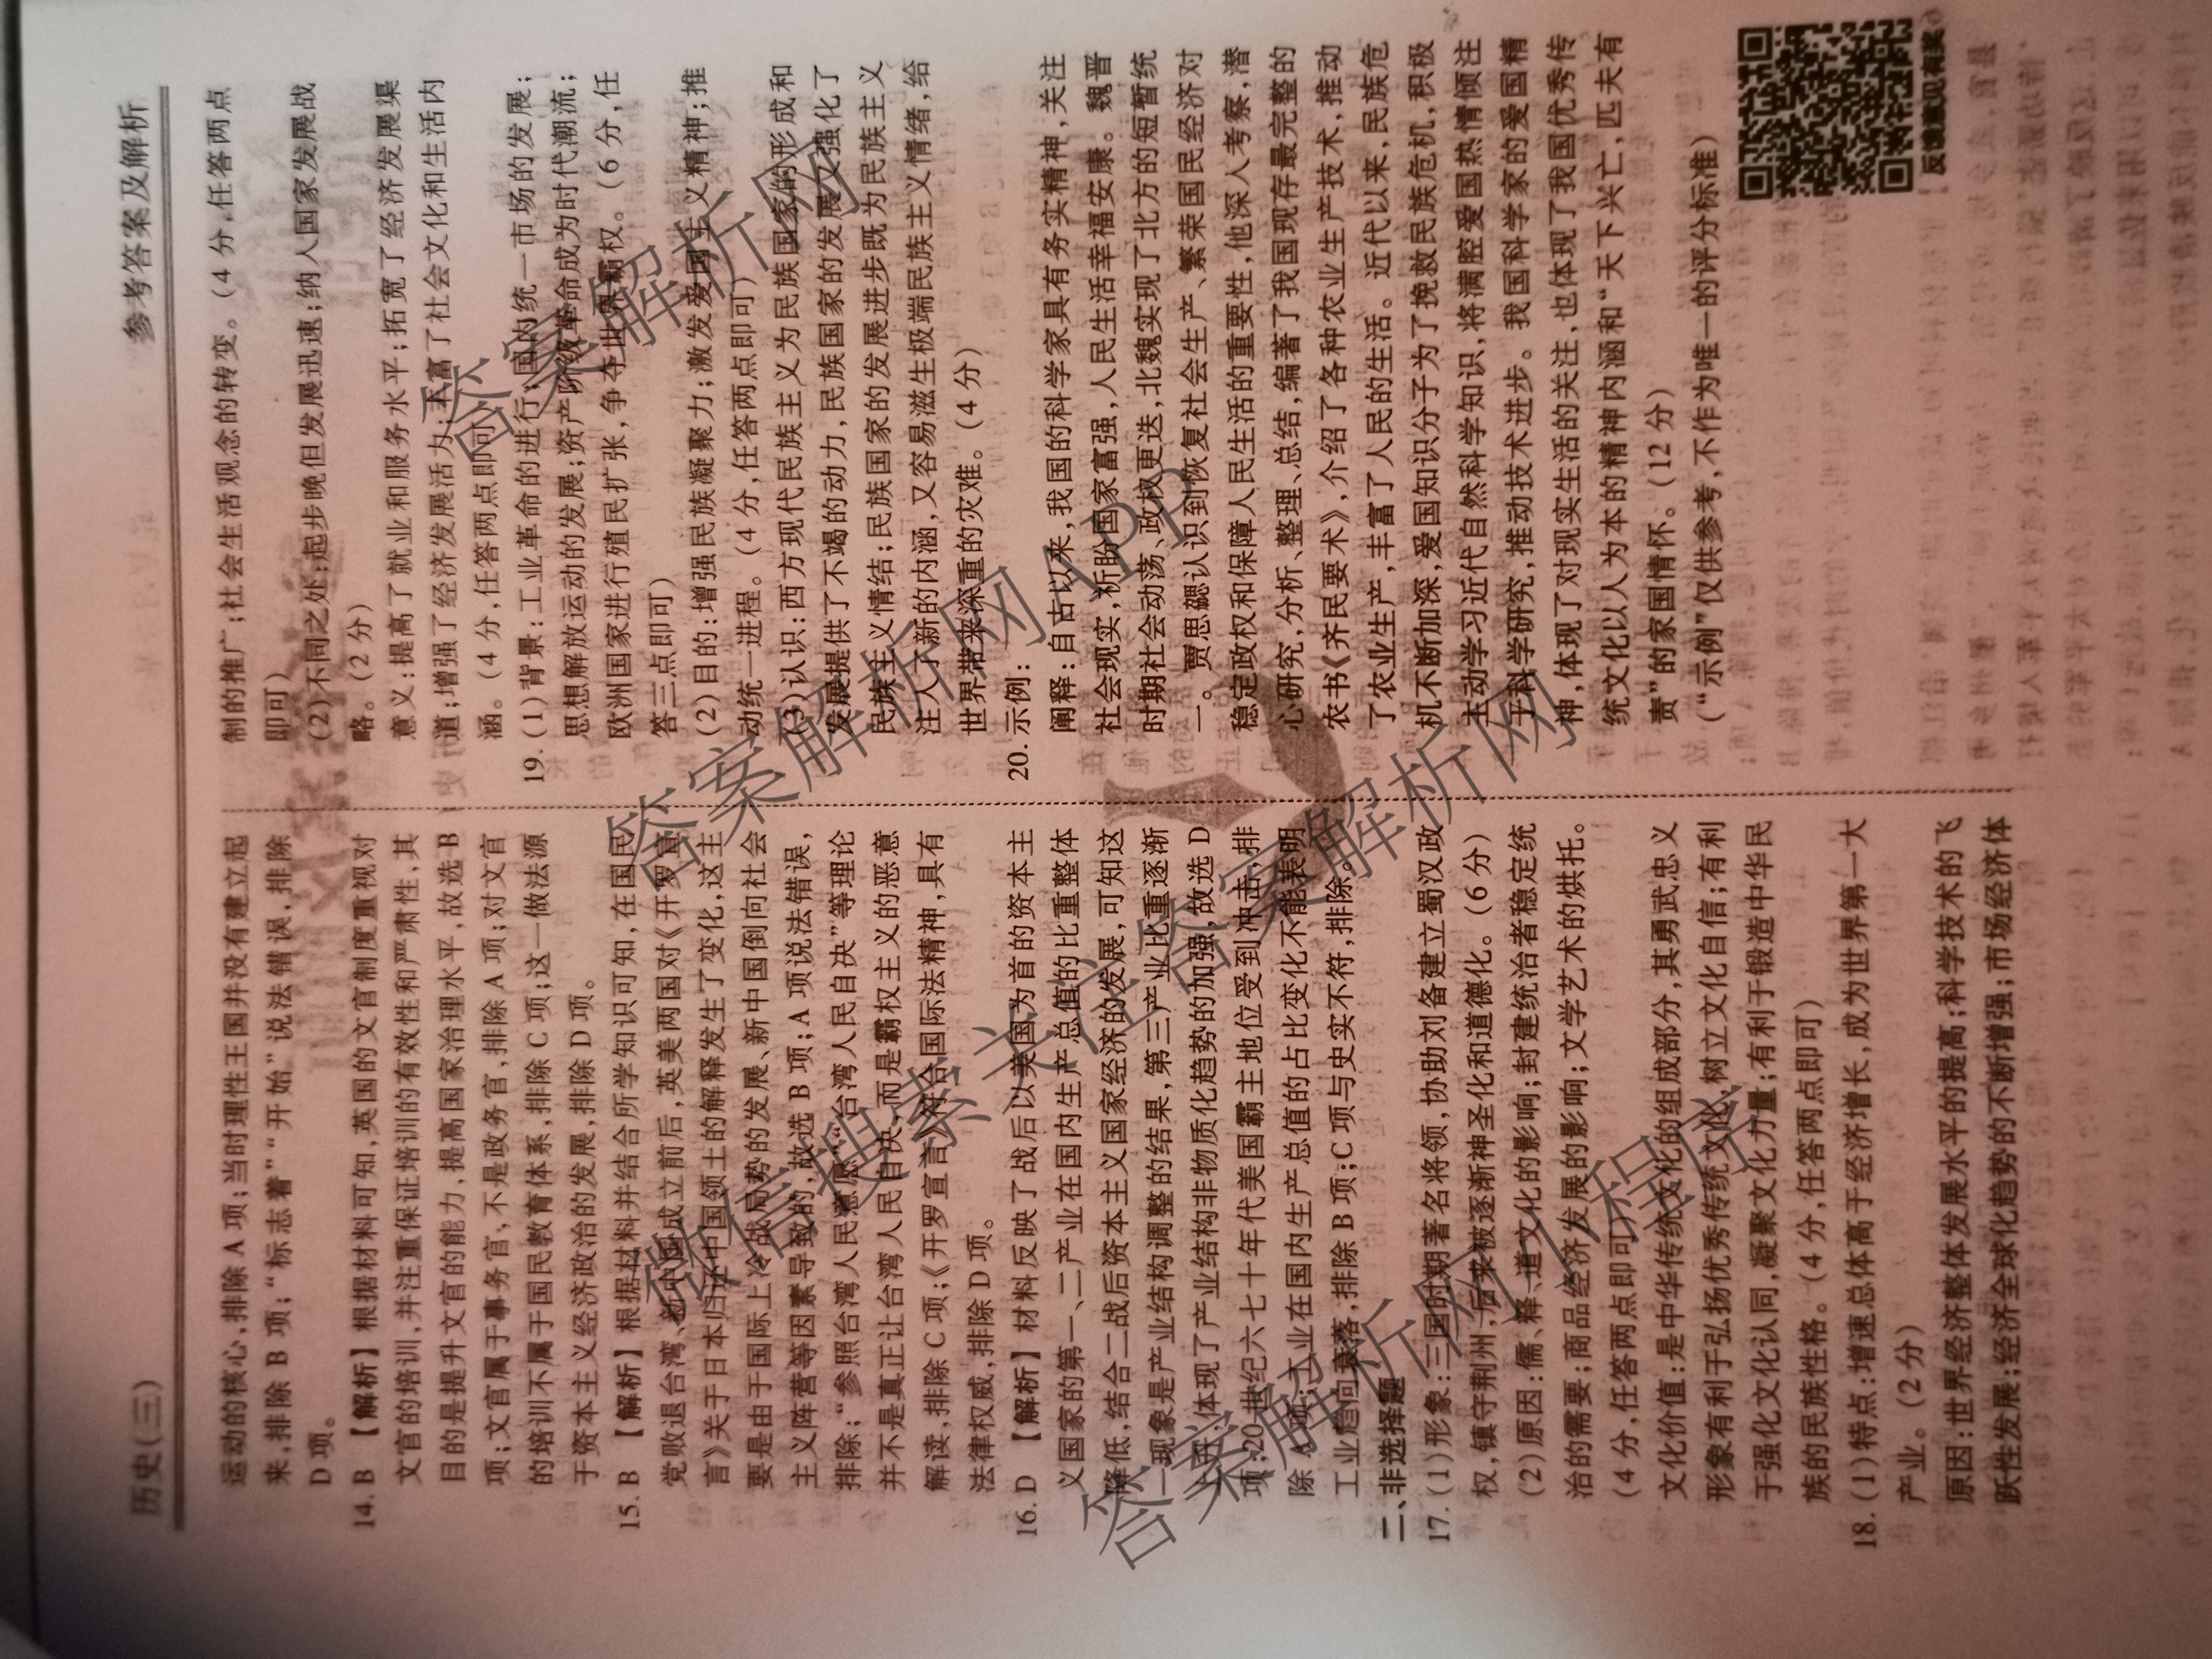 历史(三)
参考答案及解析
运动的核心,排除 A 项;当时理性王国并没有建立起
来,排除 B 项;“标志着”“开始”说法错误,排除
D 项。
14. B 【解析】根据材料可知,英国的文官制度重视对
文官的培训,并注重保证培训的有效性和严肃性,其
目的是提升文官的能力,提高国家治理水平,故选 B
项;文官属于事务官,不是政务官,排除 A 项;对文官
的培训不属于国民教育体系,排除 C 项;这一做法源
于资本主义经济政治的发展,排除 D 项。
15. B 【解析】根据材料并结合所学知识可知,在国民
党败退台湾、新中国成立前后,英美两国对《开罗宣
言》关于日本归还中国领土的解释发生了变化,这主
要是由于国际上冷战局势的发展、新中国倒向社会
主义阵营等因素导致的,故选 B 项;A 项说法错误,
排除;“参照台湾人民意愿”“台湾人民自决”等理论
并不是真正让台湾人民自决,而是霸权主义的恶意
解读,排除 C 项;《开罗宣言》符合国际法精神,具有
法律权威,排除 D 项。
16. D 【解析】材料反映了战后以美国为首的资本主
义国家的第一、二产业在国内生产总值的比重整体
降低,结合二战后资本主义国家经济的发展,可知这
一现象是产业结构调整的结果,第三产业比重逐渐
上升,体现了产业结构非物质化趋势的加强,故选 D
项;20 世纪六七十年代美国霸主地位受到冲击,排
除 A 项;工业在国内生产总值的占比变化不能表明
工业趋向衰落,排除 B 项;C 项与史实不符,排除。
二、非选择题
17. (1)形象:三国时期著名将领,协助刘备建立蜀汉政
权,镇守荆州,后来被逐渐神圣化和道德化。(6 分)
(2)原因:儒、释、道文化的影响;封建统治者稳定统
治的需要;商品经济发展的影响;文学艺术的烘托。
(4 分,任答两点即可)
文化价值:是中华传统文化的组成部分,其勇武忠义
形象有利于弘扬优秀传统文化,树立文化自信;有利
于强化文化认同,凝聚文化力量;有利于锻造中华民
族的民族性格。(4 分,任答两点即可)
18. (1)特点:增速总体高于经济增长,成为世界第一大
产业。(2 分)
原因:世界经济整体发展水平的提高;科学技术的飞
跃性发展;经济全球化趋势的不断增强;市场经济体
制的推广;社会生活观念的转变。(4 分,任答两点
即可)
(2)不同之处:起步晚但发展迅速;纳入国家发展战
略。(2 分)
意义:提高了就业和服务水平;拓宽了经济发展渠
道;增强了经济发展活力;丰富了社会文化和生活内
涵。(4 分,任答两点即可)
19. (1)背景:工业革命的进行;国内统一市场的发展;
思想解放运动的发展;资产阶级革命成为时代潮流;
欧洲国家进行殖民扩张,争夺世界霸权。(6 分,任
答三点即可)
(2)目的:增强民族凝聚力;激发爱国主义精神;推
动统一进程。(4 分,任答两点即可)
(3)认识:西方现代民族主义为民族国家的形成和
发展提供了不竭的动力,民族国家的发展又强化了
民族主义情结;民族国家的发展进步既为民族主义
注入了新的内涵,又容易滋生极端民族主义情绪,给
世界带来深重的灾难。(4 分)
20. 示例:
阐释:自古以来,我国的科学家具有务实精神,关注
社会现实,祈盼国家富强,人民生活幸福安康。魏晋
时期社会动荡、政权更迭,北魏实现了北方的短暂统
一。贾思勰认识到恢复社会生产、繁荣国民经济对
稳定政权和保障人民生活的重要性,他深入考察,潜
心研究,分析、整理、总结,编著了我国现存最完整的
农书《齐民要术》,介绍了各种农业生产技术,推动
了农业生产,丰富了人民的生活。近代以来,民族危
机不断加深,爱国知识分子为了挽救民族危机,积极
主动学习近代自然科学知识,将满腔爱国热情倾注
于科学研究,推动技术进步。我国科学家的爱国精
神,体现了对现实生活的关注,也体现了我国优秀传
统文化以人为本的精神内涵和“天下兴亡,匹夫有
责”的家国情怀。(12 分)
(“示例”仅供参考,不作为唯一的评分标准)
反馈意见有奖
答案解析网
答案解析网APP
微信搜索关注答案解析网
答案解析网小程序